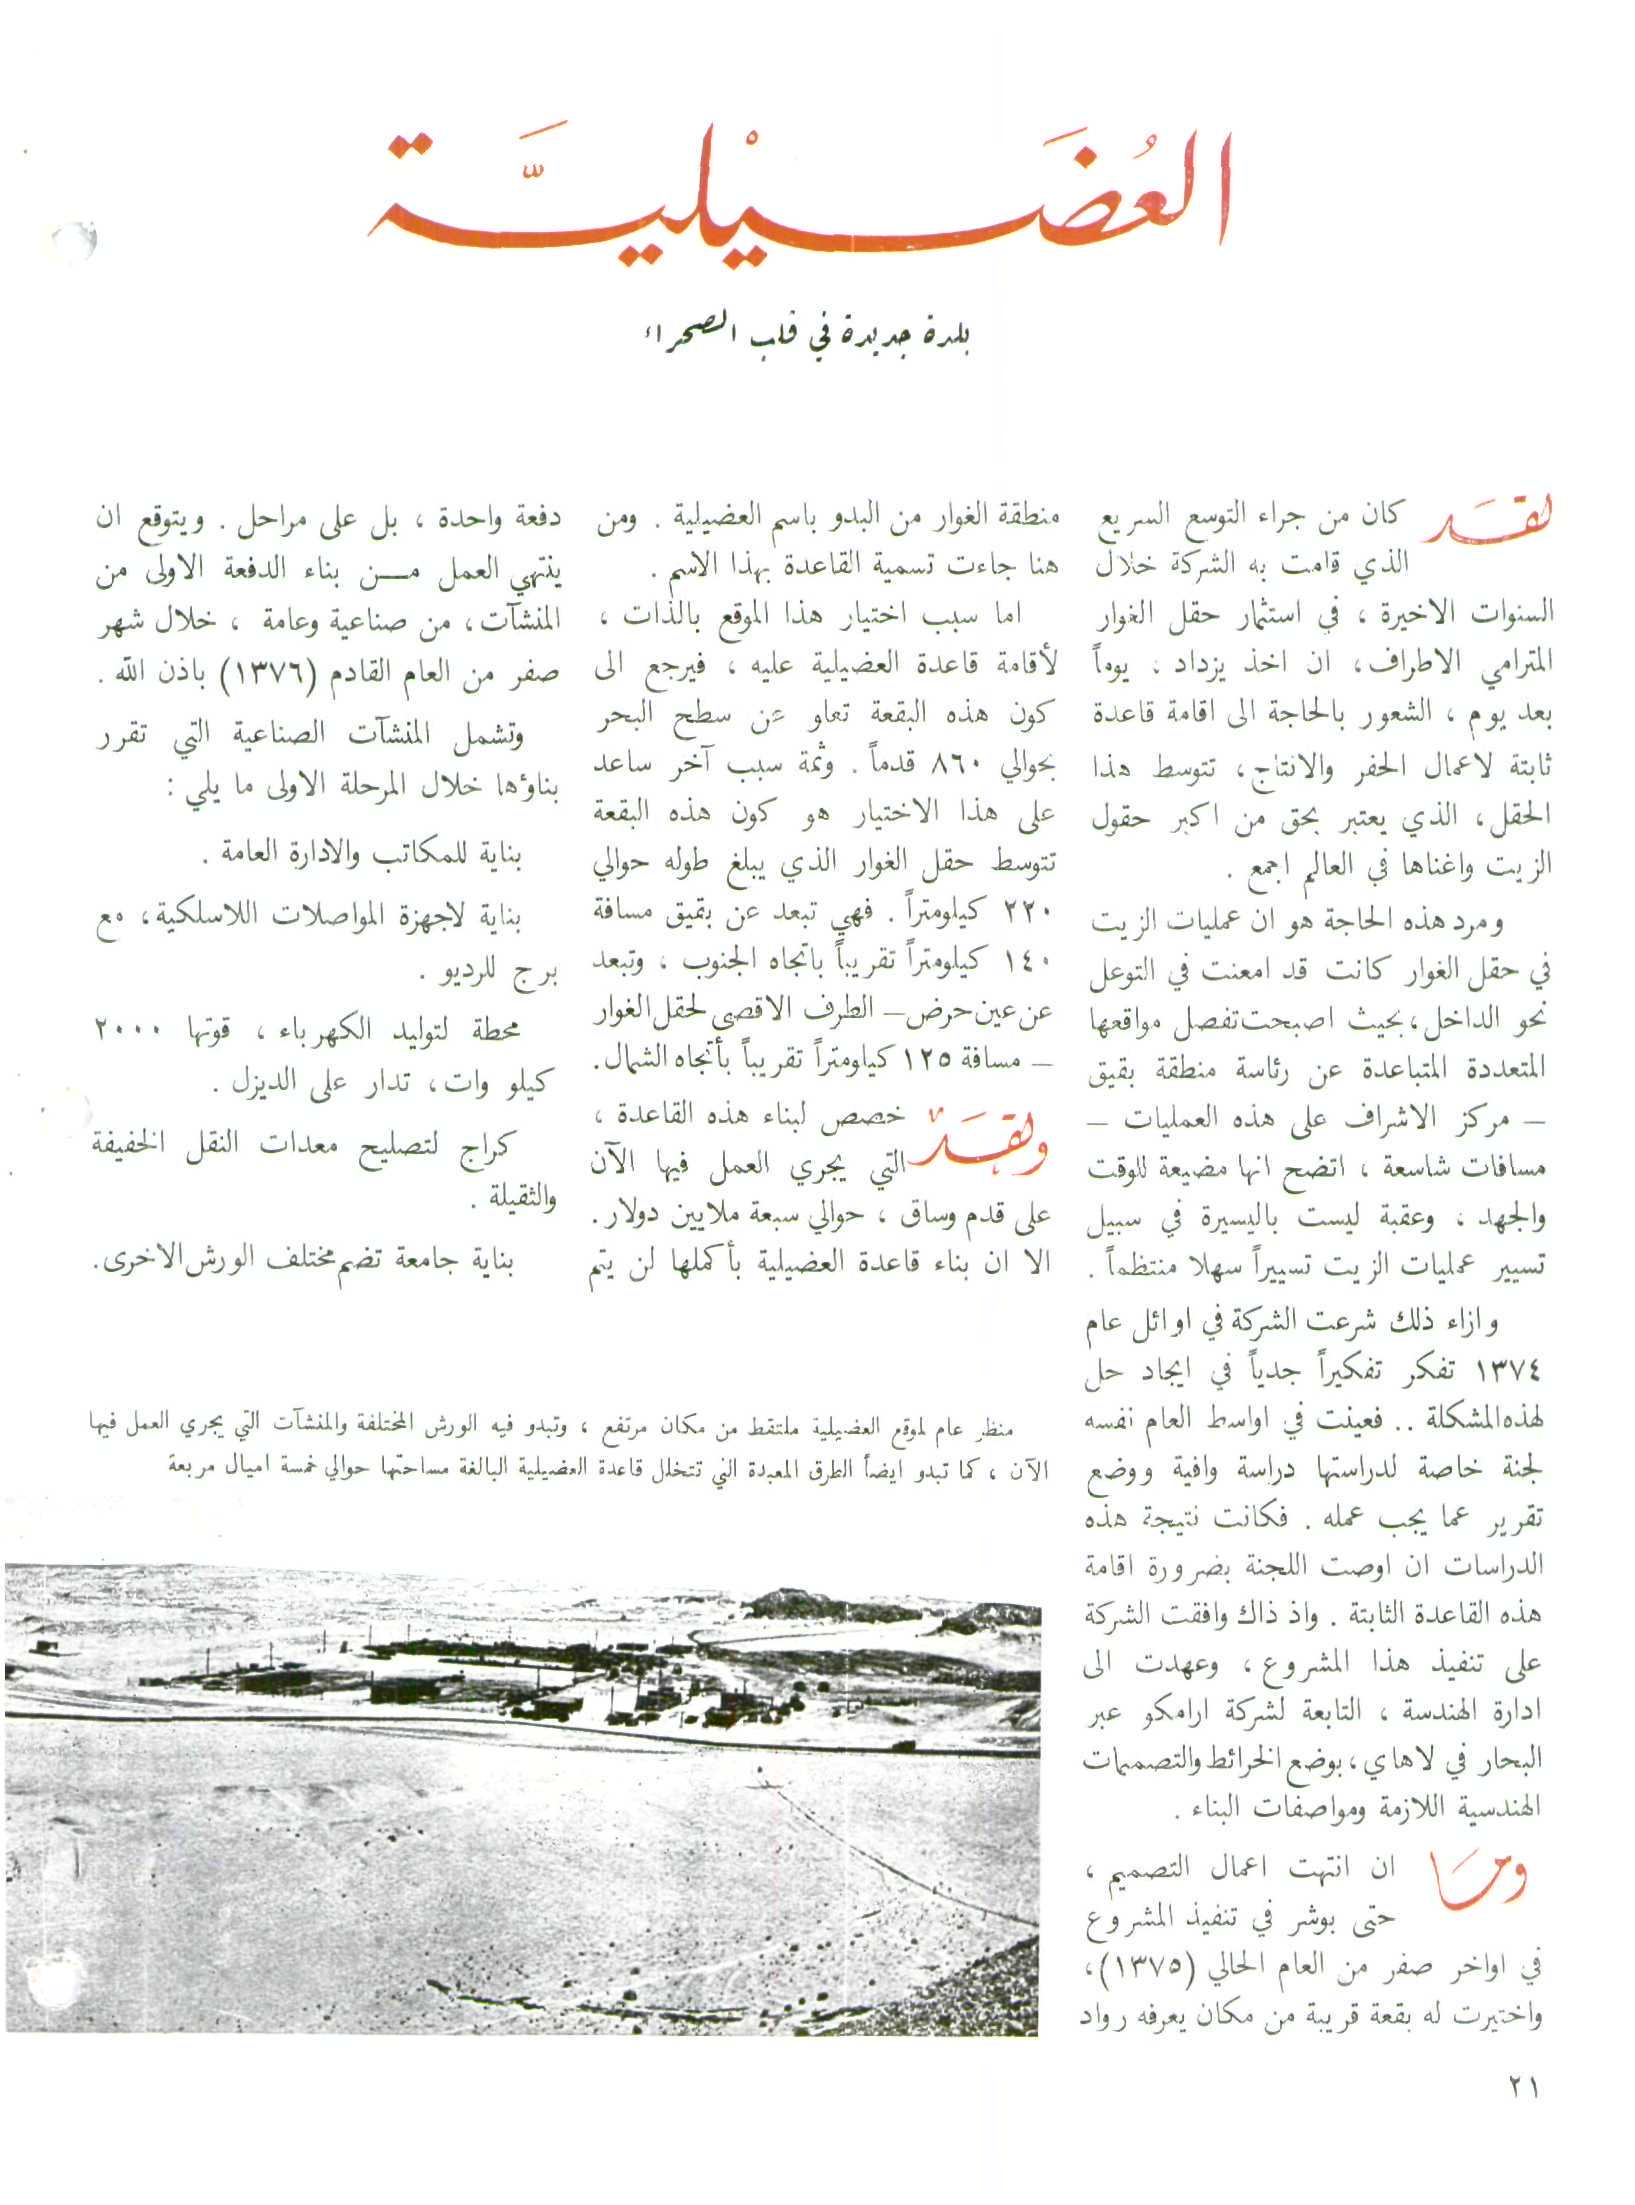 العُضَيْليَّة
بلدة جديدة في قلب الصحراء
لقَد كان من جراء التوسع السريع
الذي قامت به الشركة خلال
السنوات الاخيرة ، في استثمار حقل الغوار
المترامي الاطراف، ان اخذ يزداد ، يوماً
بعد يوم ، الشعور بالحاجة الى اقامة قاعدة
ثابتة لاعمال الحفر والانتاج، تتوسط هذا
الحقل، الذي يعتبر بحق من اكبر حقول
الزيت واغناها في العالم اجمع .
ومرد هذه الحاجة هو ان عمليات الزيت
في حقل الغوار كانت قد امعنت في التوعل
نحو الداخل ، بحيث اصبحت تفصل مواقعها
المتعددة المتباعدة عن رئاسة منطقة بقيق
– مركز الاشراف على هذه العمليات –
مسافات شاسعة ، اتضح انها مضيعة للوقت
والجهد ، وعقبة ليست باليسيرة في سبيل
تسيير عمليات الزيت تسييراً سهلا منتظماً .
وازاء ذلك شرعت الشركة في اوائل عام
١٣٧٤ تفكر تفكيراً جدياً في ايجاد حل
لهذه المشكلة .. فعينت في اواسط العام نفسه
لجنة خاصة لدراستها دراسة وافية ووضع
تقرير عما يجب عمله . فكانت نتيجة هذه
الدراسات ان اوصت اللجنة بضرورة اقامة
هذه القاعدة الثابتة . واذ ذاك وافقت الشركة
على تنفيذ هذا المشروع ، وعهدت الى
ادارة الهندسة ، التابعة لشركة ارامكو عبر
البحار في لاهاي ، بوضع الخرائط والتصميمات
الهندسية اللازمة ومواصفات البناء .
ومَا ان انتهت اعمال التصميم ،
حتى بوشر في تنفيذ المشروع
في اواخر صفر من العام الحالي (١٣٧٥)،
واختيرت له بقعة قريبة من مكان يعرفه رواد
منطقة الغوار من البدو باسم العضيلية . ومن
هنا جاءت تسمية القاعدة بهذا الاسم .
اما سبب اختيار هذا الموقع بالذات ،
لأقامة قاعدة العضيلية عليه ، فيرجع الى
كون هذه البقعة تعلو عن سطح البحر
بحوالي ٨٦٠ قدماً . وثمة سبب آخر ساعد
على هذا الاختيار هو كون هذه البقعة
تتوسط حقل الغوار الذي يبلغ طوله حوالي
٢٢٠ كيلومتراً . فهي تبعد عن بقيق مسافة
١٤٠ كيلومتراً تقريباً باتجاه الجنوب ، وتبعد
عن عين حرض – الطرف الاقصى لحقل الغوار
– مسافة ١٢٥ كيلومتراً تقريباً بأتجاه الشمال.
ولقَد خصص لبناء هذه القاعدة ،
التي يجري العمل فيها الآن
على قدم وساق ، حوالي سبعة ملايين دولار.
الا ان بناء قاعدة العضيلية بأكملها لن يتم
دفعة واحدة ، بل على مراحل . ويتوقع ان
ينتهي العمل مـن بناء الدفعة الاولى من
المنشآت، من صناعية وعامة ، خلال شهر
صفر من العام القادم (١٣٧٦) باذن الله .
وتشمل المنشآت الصناعية التي تقرر
بناؤها خلال المرحلة الاولى ما يلي :
بناية للمكاتب والادارة العامة .
بناية لاجهزة المواصلات اللاسلكية، مع
برج للرديو .
محطة لتوليد الكهرباء ، قوتها ٢٠٠٠
كيلو وات، تدار على الديزل .
كراج لتصليح معدات النقل الخفيفة
والثقيلة .
بناية جامعة تضم مختلف الورش الاخرى.
منظر عام لموقع العضيلية ملتقط من مكان مرتفع ، وتبدو فيه الورش المختلفة والمنشآت التي يجري العمل فيها
الآن ، كما تبدو ايضاً الطرق المعبدة التي تتخلل قاعدة العضيلية البالغة مساحتها حوالي خمسة اميال مربعة
٢١